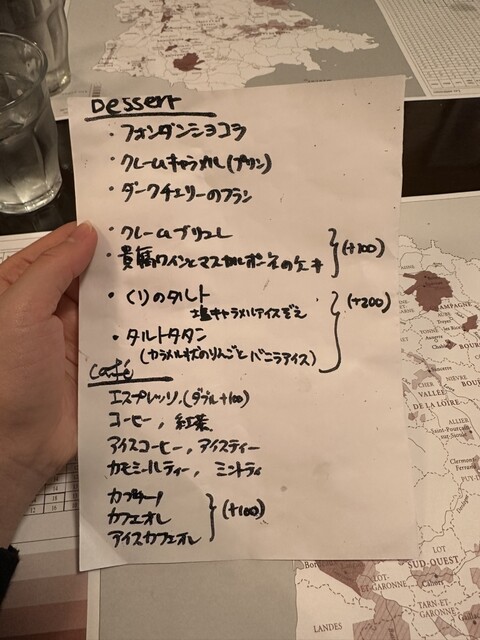 Dessert
・フォンダンショコラ
・クレームキャラメル(プリン)
・ダークチェリーのフラン
・クレームブリュレ
・貴腐ワインとマスカルポーネのケーキ
(+100)
・くりのタルト
塩キャラメルアイスぞえ
(+200)
・タルトタタン
(カラメル状のりんごとバニラアイス)
Café
エスプレッソ,(ダブル+100)
コーヒー, 紅茶
アイスコーヒー, アイスティー
カモミールティー, ミントティ
カプチーノ
カフェオレ
(+100)
アイスカフェオレ
AMPAGNE
VALLÉE
DE LA LOIRE
CHER
NIÈVRE
ALLIER
Saint-Pourçain-sur-Sioule
Clermont-Ferrand
LOT
SUD-OUEST
LOT-ET-GARONNE
Cahors
TARN-ET-GARONNE
LANDES